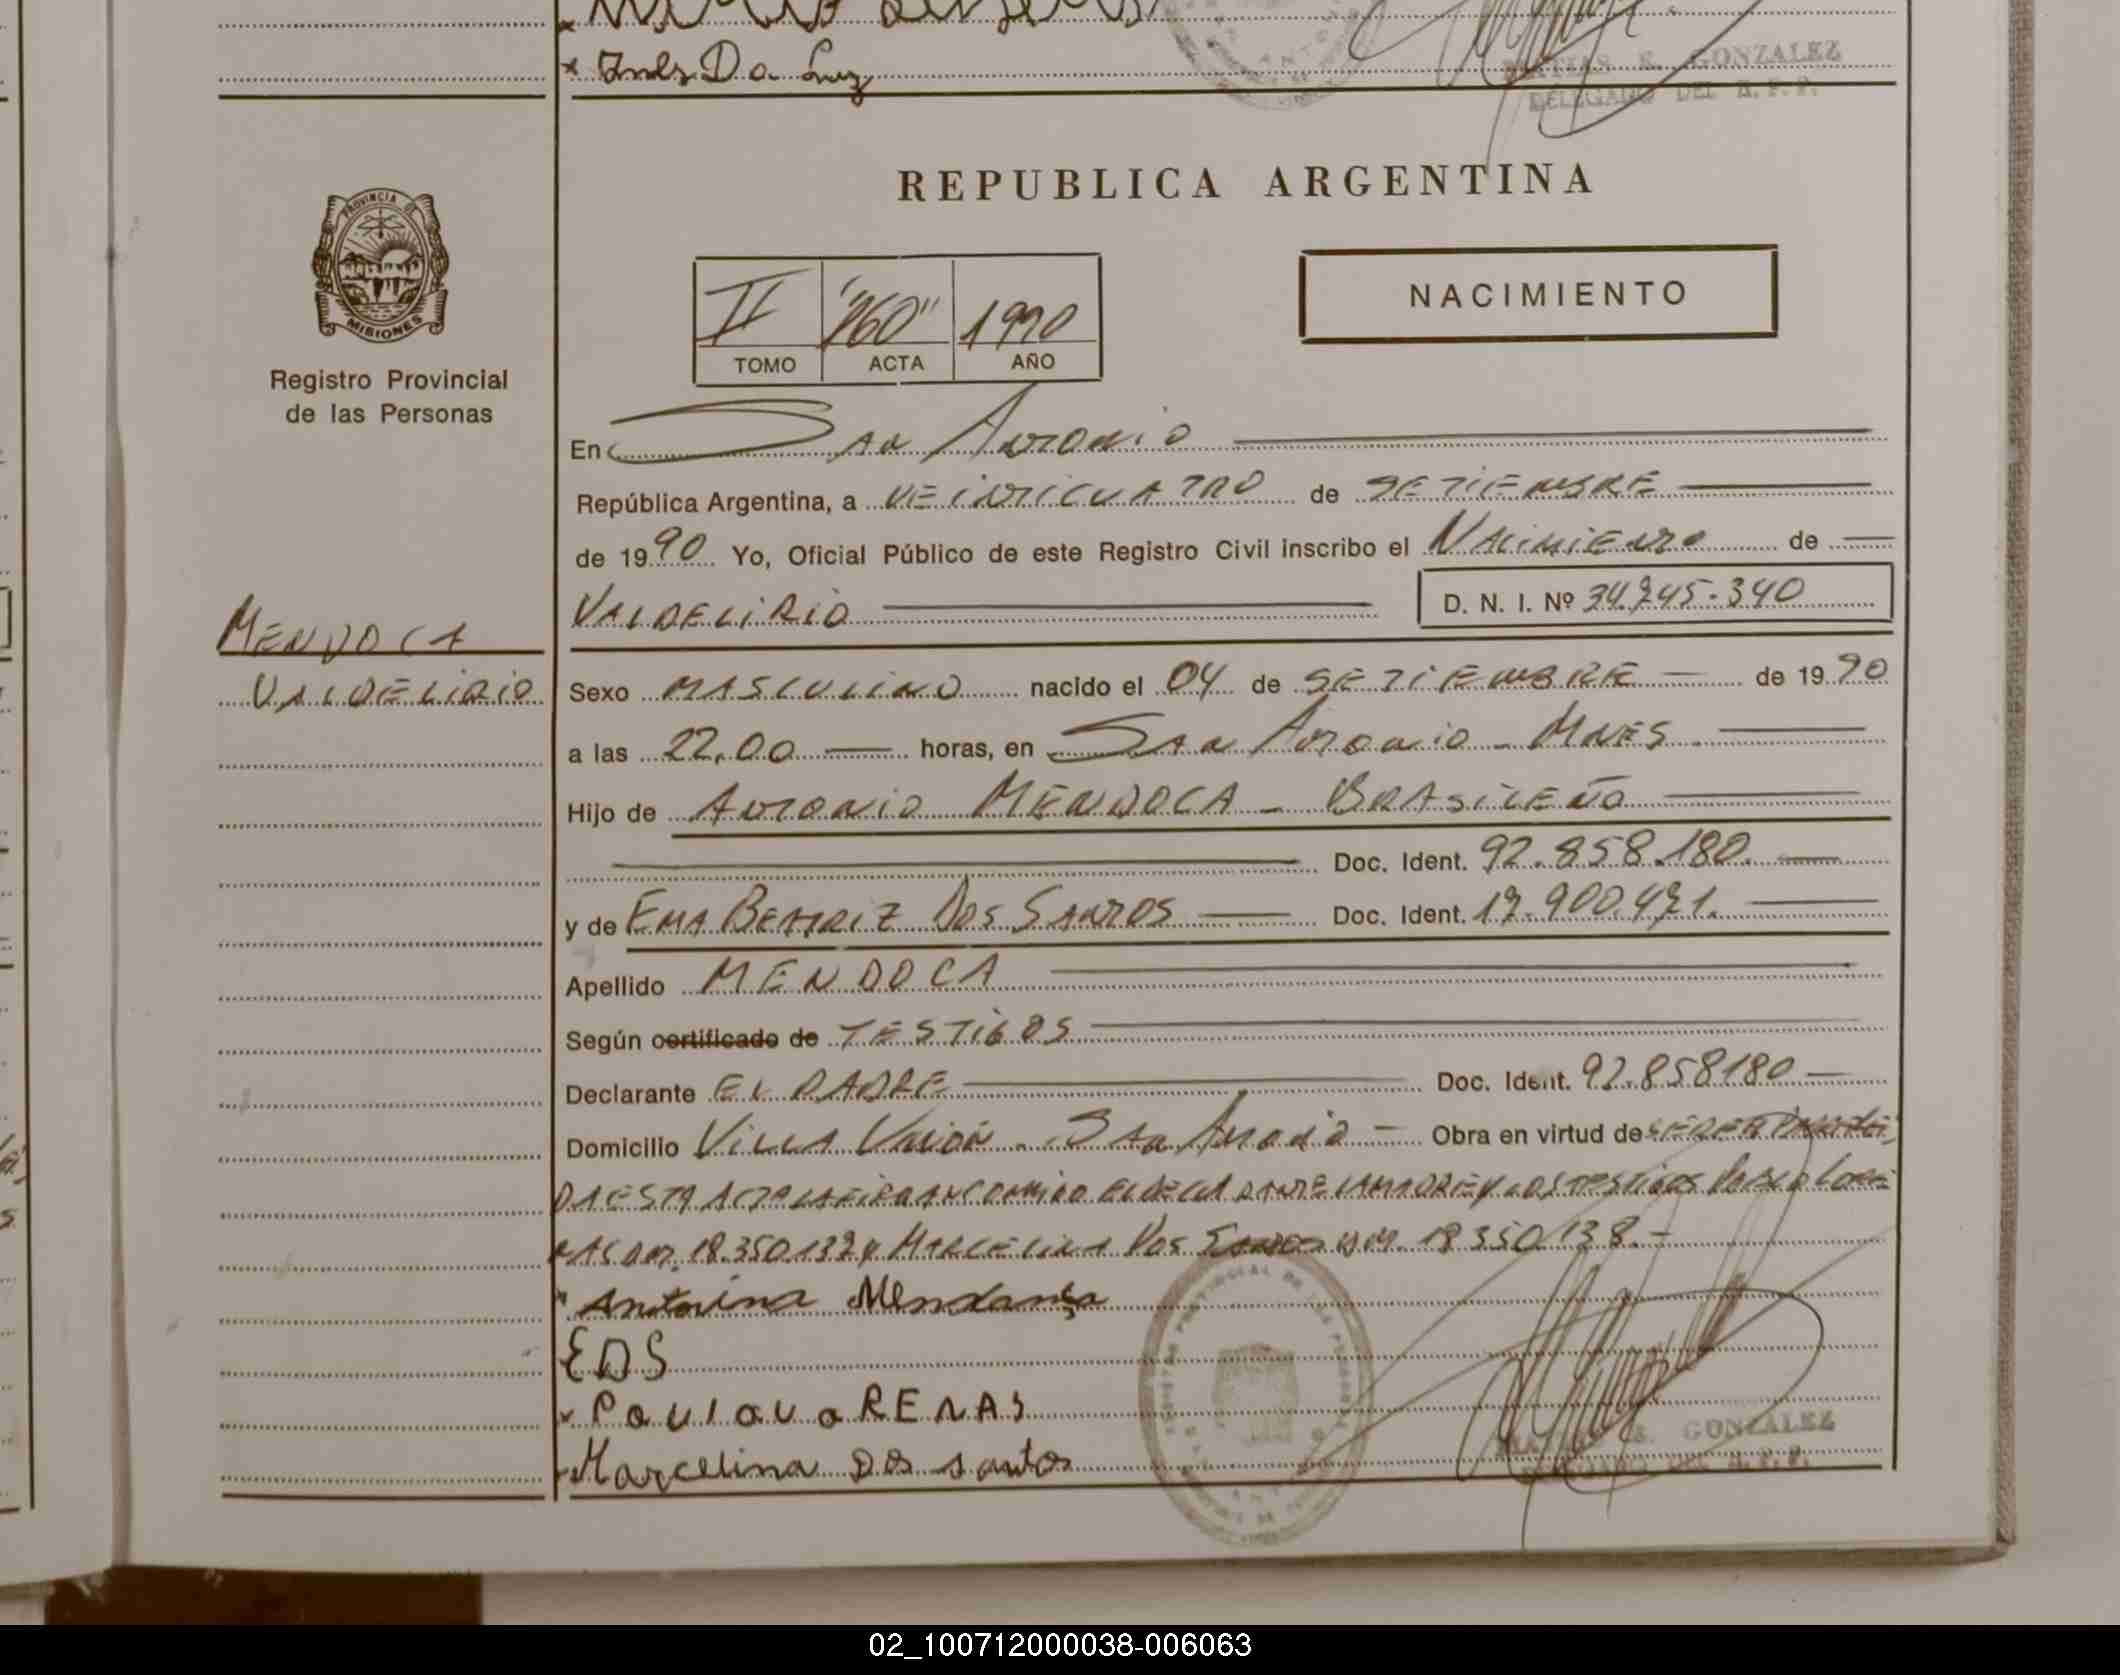 Ines Da Luz
GONZALEZ
DELEGADO DEL R. P. P.
REPUBLICA ARGENTINA
PROVINCIA DE
MISIONES
Registro Provincial
de las Personas
II "260" 1990
TOMO ACTA AÑO
NACIMIENTO
En San Antonio
República Argentina, a VEINTICUATRO de SETIEMBRE
de 1990 Yo, Oficial Público de este Registro Civil inscribo el NACIMIENTO de
VALDELIRIO D. N. I. Nº 34.945.340
MENDOCA
VALDELIRIO
Sexo MASCULINO nacido el 04 de SETIEMBRE de 1990
a las 22,00 horas, en San Antonio - MNES
Hijo de ANTONIO MENDOCA - BRASILEÑO
Doc. Ident. 92.858.180.
y de EMA BEATRIZ DOS SANTOS Doc. Ident. 17.900.471.
Apellido MENDOCA
Según certificado de TESTIGOS
Declarante EL PADRE Doc. Ident. 92.858180
Domicilio VILLA UNION - San Antonio - Obra en virtud de
DA ESTA ACTA LA FIRMAN CONMIGO EL DECLARANTE LA MADRE Y LOS TESTIGOS
18.350.137 y MARCELINA DOS SANTOS DNI 18 350 138.-
Mendança
EDS
ARENAS
Marcelina Dos santos
GONZALEZ
02_100712000038-006063